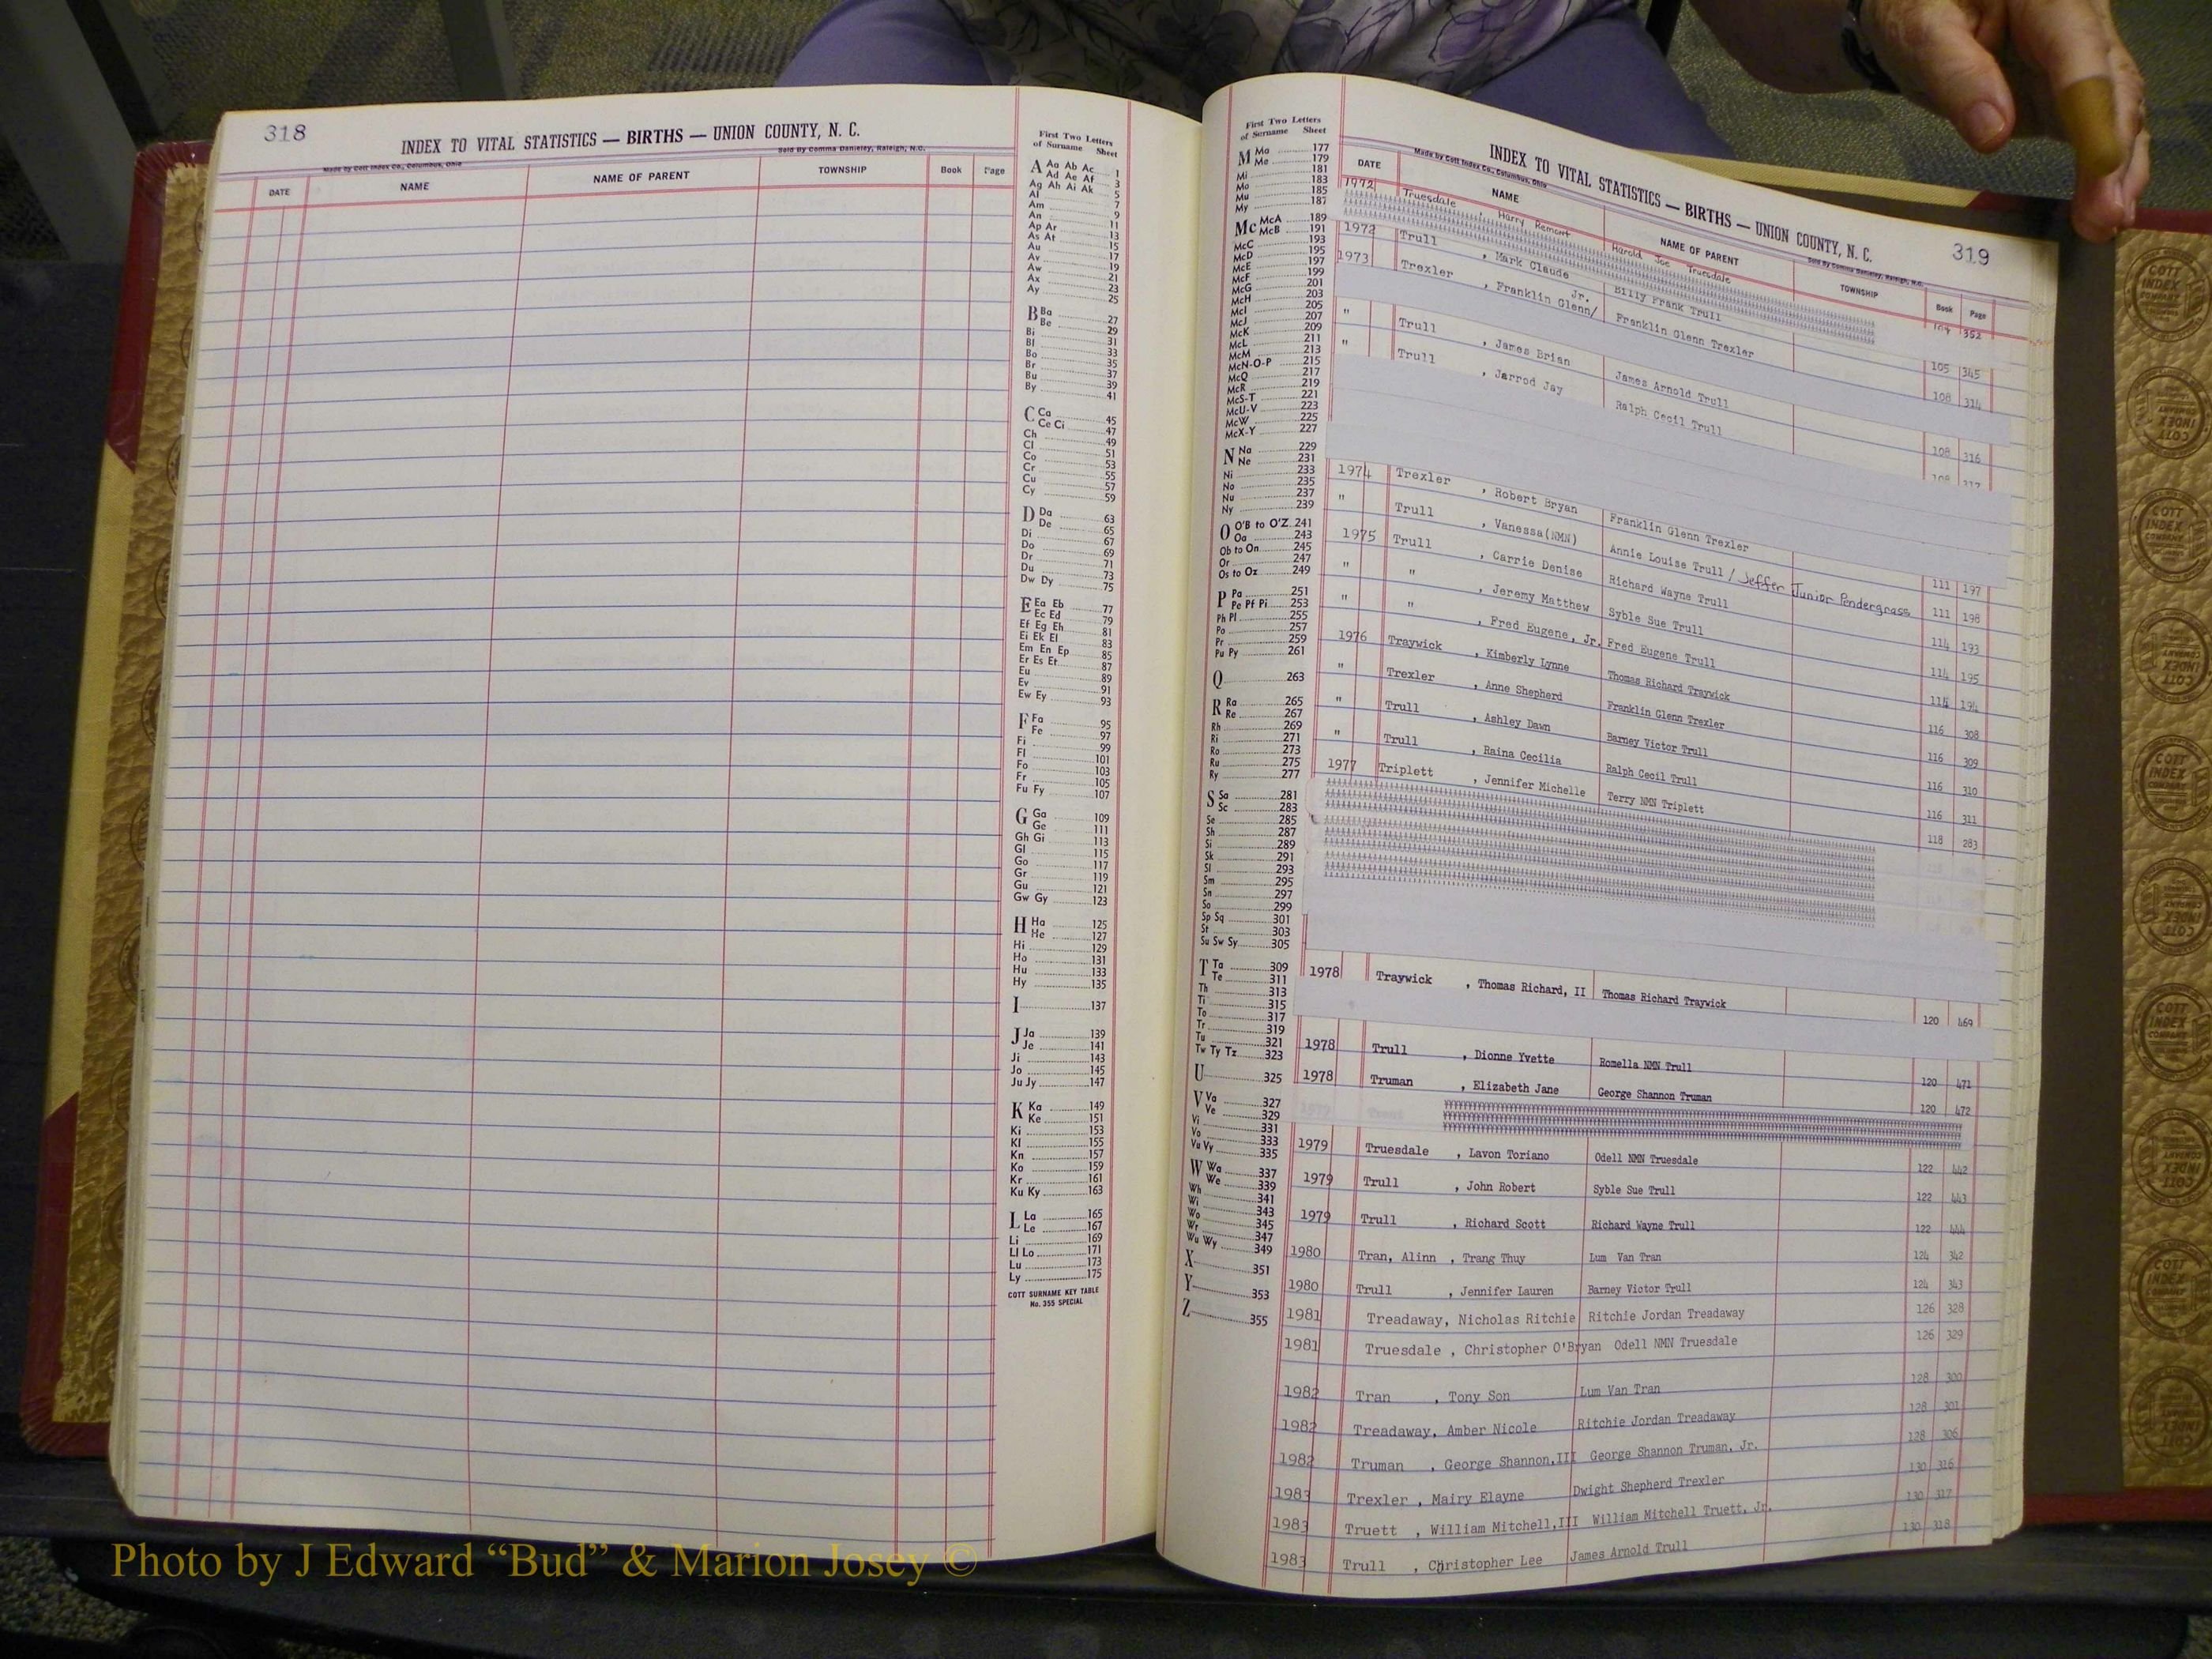 318
INDEX TO VITAL STATISTICS — BIRTHS — UNION COUNTY, N. C.
Made by Cott Index Co., Columbus, Ohio
Sold By Comma Danieley, Raleigh, N.C.
DATE NAME NAME OF PARENT TOWNSHIP Book Page
First Two Letters
of Surname Sheet
A Aa Ab Ac 1
Ad Ae Af 3
Ag Ah Ai Ak 5
Al 7
Am 9
An 11
Ap Ar 13
As At 15
Au 17
Av 19
Aw 21
Ax 23
Ay 25
B Ba 27
Be 29
Bi 31
Bl 33
Bo 35
Br 37
Bu 39
By 41
C Ca 45
Ce Ci 47
Ch 49
Cl 51
Co 53
Cr 55
Cu 57
Cy 59
D Da 63
De 65
Di 67
Do 69
Dr 71
Du 73
Dw Dy 75
E Ea Eb 77
Ec Ed 79
Ef Eg Eh 81
Ei Ek El 83
Em En Ep 85
Er Es Et 87
Eu 89
Ev 91
Ew Ey 93
F Fa 95
Fe 97
Fi 99
Fl 101
Fo 103
Fr 105
Fu Fy 107
G Ga 109
Ge 111
Gh Gi 113
Gl 115
Go 117
Gr 119
Gu 121
Gw Gy 123
H Ha 125
He 127
Hi 129
Ho 131
Hu 133
Hy 135
I 137
J Ja 139
Je 141
Ji 143
Jo 145
Ju Jy 147
K Ka 149
Ke 151
Ki 153
Kl 155
Kn 157
Ko 159
Kr 161
Ku Ky 163
L La 165
Le 167
Li 169
Ll Lo 171
Lu 173
Ly 175
COTT SURNAME KEY TABLE
No. 355 SPECIAL
First Two Letters
of Surname Sheet
M Ma 177
Me 179
Mi 181
Mo 183
Mu 185
My 187
Mc McA 189
McB 191
McC 193
McD 195
McE 197
McF 199
McG 201
McH 203
McI 205
McJ 207
McK 209
McL 211
McM 213
McN-O-P 215
McQ 217
McR 219
McS-T 221
McU-V 223
McW 225
McX-Y 227
N Na 229
Ne 231
Ni 233
No 235
Nu 237
Ny 239
O O'B to O'Z 241
Oa 243
Ob to On 245
Or 247
Os to Oz 249
P Pa 251
Pe Pf Pi 253
Ph Pl 255
Po 257
Pr 259
Pu Py 261
Q 263
R Ra 265
Re 267
Rh 269
Ri 271
Ro 273
Ru 275
Ry 277
S Sa 281
Sc 283
Se 285
Sh 287
Si 289
Sk 291
Sl 293
Sm 295
Sn 297
So 299
Sp Sq 301
St 303
Su Sw Sy 305
T Ta 309
Te 311
Th 313
Ti 315
To 317
Tr 319
Tu 321
Tw Ty Tz 323
U 325
V Va 327
Ve 329
Vi 331
Vo 333
Vu Vy 335
W Wa 337
We 339
Wh 341
Wi 343
Wo 345
Wr 347
Wu Wy 349
X 351
Y 353
Z 355
INDEX TO VITAL STATISTICS — BIRTHS — UNION COUNTY, N. C. 319
Made by Cott Index Co., Columbus, Ohio
Sold By Comma Danieley, Raleigh, N.C.
DATE NAME NAME OF PARENT TOWNSHIP Book Page
1972 Truesdale , Harry Remont Harold Joe Truesdale 352
1972 Trull , Mark Claude Billy Frank Trull 105 345
1973 Trexler , Franklin Glenn/ Jr. Franklin Glenn Trexler 108 314
" Trull , James Brian James Arnold Trull 108 316
" Trull , Jarrod Jay Ralph Cecil Trull 108 317
1974 Trexler , Robert Bryan Franklin Glenn Trexler 111 197
" Trull , Vanessa(NMN) Annie Louise Trull / Jeffer Junior Pendergrass 111 198
1975 Trull , Carrie Denise Richard Wayne Trull 114 193
" " , Jeremy Matthew Syble Sue Trull 114 195
" " , Fred Eugene, Jr. Fred Eugene Trull 114 194
1976 Traywick , Kimberly Lynne Thomas Richard Traywick 116 308
" Trexler , Anne Shepherd Franklin Glenn Trexler 116 309
" Trull , Ashley Dawn Barney Victor Trull 116 310
" Trull , Raina Cecilia Ralph Cecil Trull 116 311
1977 Triplett , Jennifer Michelle Terry NMN Triplett 118 283
1978 Traywick , Thomas Richard, II Thomas Richard Traywick 120 469
1978 Trull , Dionne Yvette Romella NMN Trull 120 471
1978 Truman , Elizabeth Jane George Shannon Truman 120 472
1979 Truesdale , Lavon Toriano Odell NMN Truesdale 122 442
1979 Trull , John Robert Syble Sue Trull 122 443
1979 Trull , Richard Scott Richard Wayne Trull 122 444
1980 Tran, Alinn , Trang Thuy Lum Van Tran 124 342
1980 Trull , Jennifer Lauren Barney Victor Trull 124 343
1981 Treadaway, Nicholas Ritchie Ritchie Jordan Treadaway 126 328
1981 Truesdale , Christopher O'Bryan Odell NMN Truesdale 126 329
1982 Tran , Tony Son Lum Van Tran 128 300
1982 Treadaway, Amber Nicole Ritchie Jordan Treadaway 128 301
1982 Truman , George Shannon,III George Shannon Truman, Jr. 128 306
1983 Trexler , Mairy Elayne Dwight Shepherd Trexler 130 316
1983 Truett , William Mitchell,III William Mitchell Truett, Jr. 130 317
1983 Trull , Christopher Lee James Arnold Trull 130 318
Photo by J Edward “Bud” & Marion Josey ©